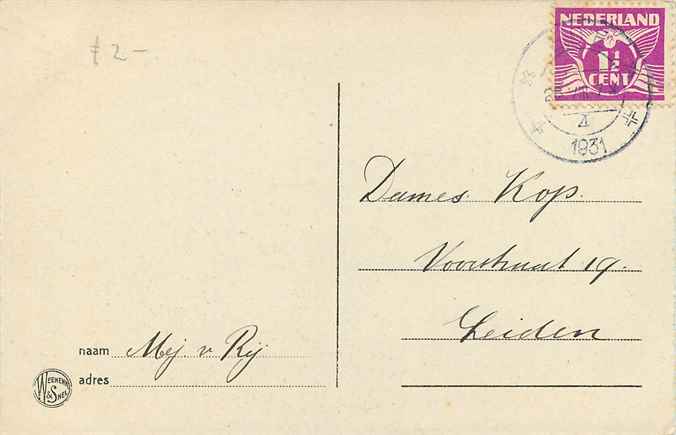 ƒ 2 -
NEDERLAND
1½
CENT
4
1931
Dames Kop.
Voorstraat 19.
Leiden
naam Mej v Rij
adres
WEENENK & SNEL